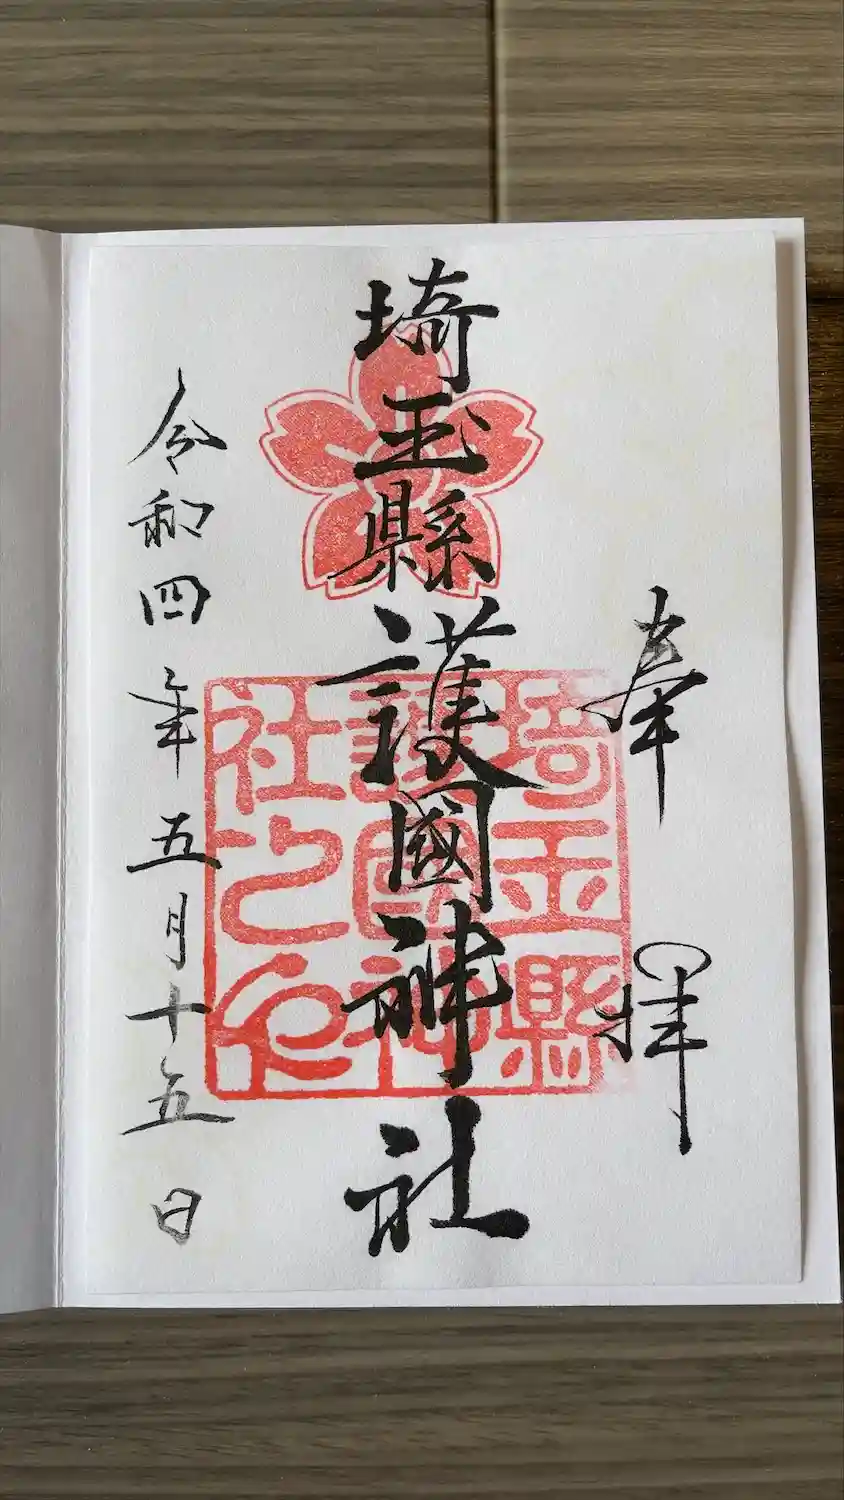 奉拝
埼玉縣護國神社
令和四年五月十五日
埼玉縣
護國神
社之印